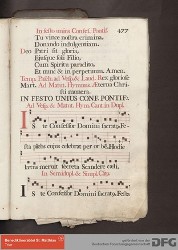 In festo unius Confes. Pontif. 477
Tu vince nostra crimina,
Donando indulgentiam.
Deo Patri sit gloria,
Ejusque soli Filio,
Cum Spiritu paraclito,
Et nunc & in perpetuum. Amen.
Temp. Pasch. ad Vesp. & Laud. Rex gloriose
Mart. Ad Matut. Hymnus. Æterna Chri-
sti munera.
IN FESTO UNIUS CONF. PONTIF.
Ad Vesp. & Matut. Hym. Cant. in Dupl.
Iste Confessor Domini sacratus, Fe-
sta plebs cujus celebrat per orbem, Hodie
lætus meruit secreta Scandere cæli.
In Semidupl. & Simpl. Cant.
Iste Confessor Domini sacratus, Festa
DFG